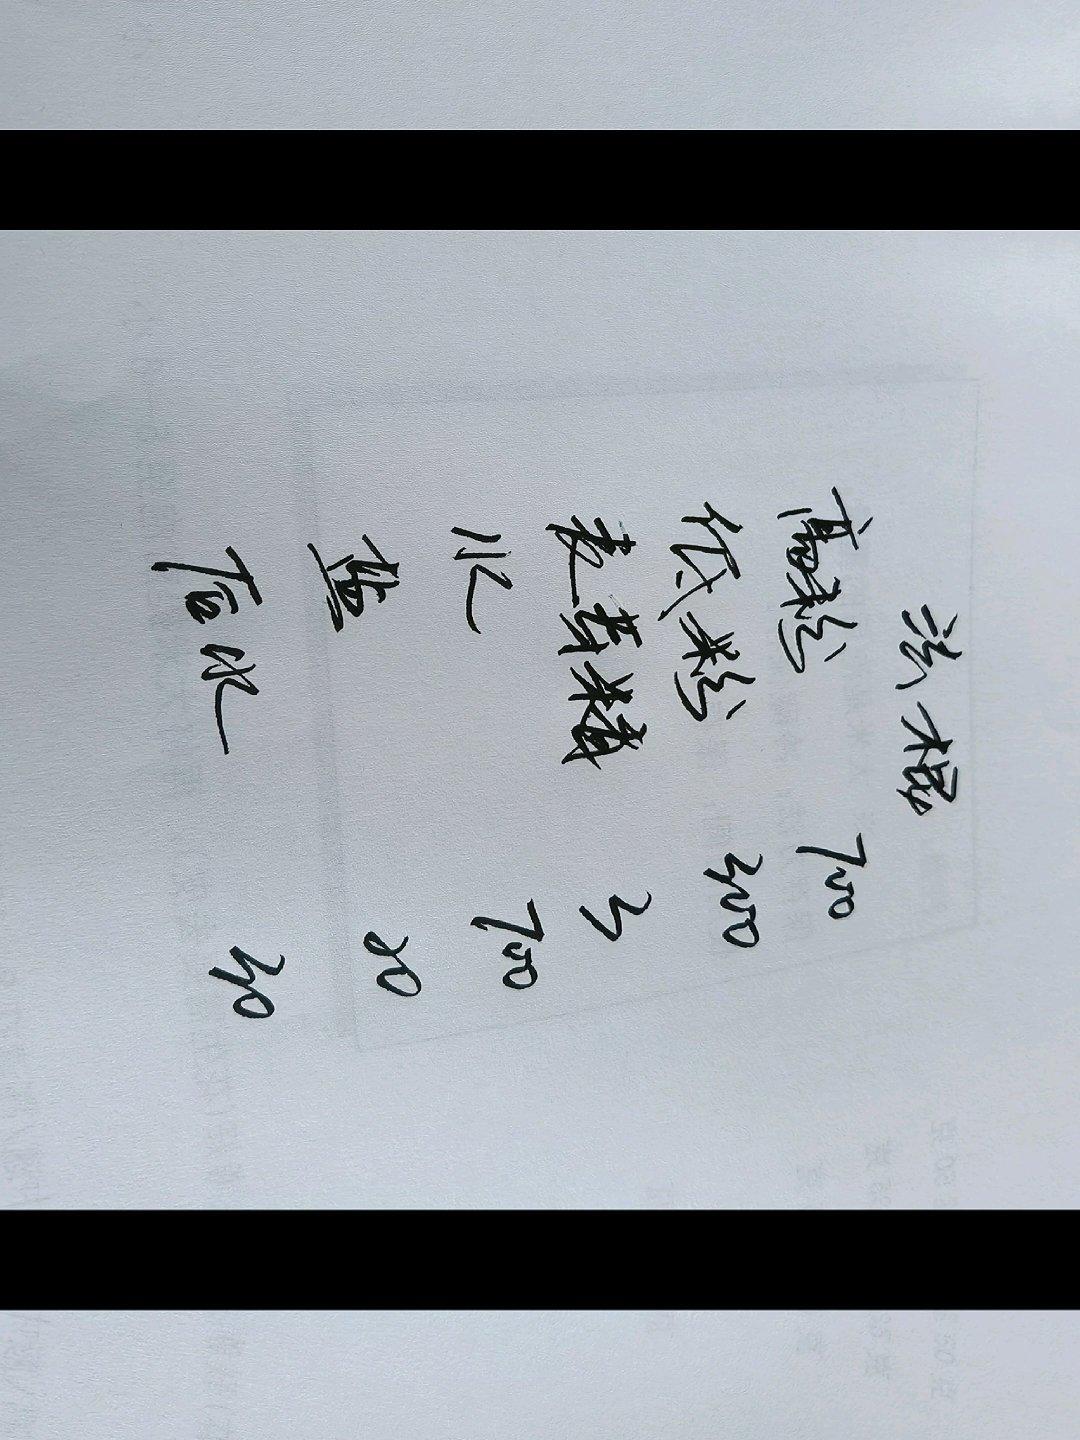 法棍
高粉 700
低粉 300
麦芽精 3
水 700
盐 20
后水 30